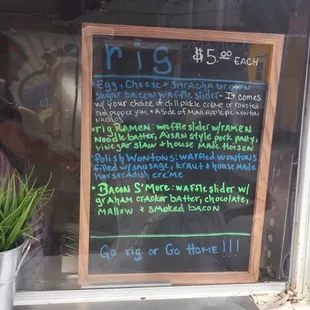 rig $5.00 EACH
• Egg, Cheese + Sriracha brown
sugar bacon waffle slider - It comes
w/ your choice of dill pickle crème or roasted
red pepper jam. + A side of mini apple pie wonton
nachos
• rig RAMEN: waffle slider w/ ramen
Noodle batter, Aisan style pork patty,
vinegar slaw + house made Horsen
Polish Wontons: waffled wontons
filled w/ sausage, kraut + house made
Horseradish creme
• Bacon S'More: waffle slider w/
graham cracker batter, chocolate,
mallow + smoked bacon
Go rig or Go Home!!!